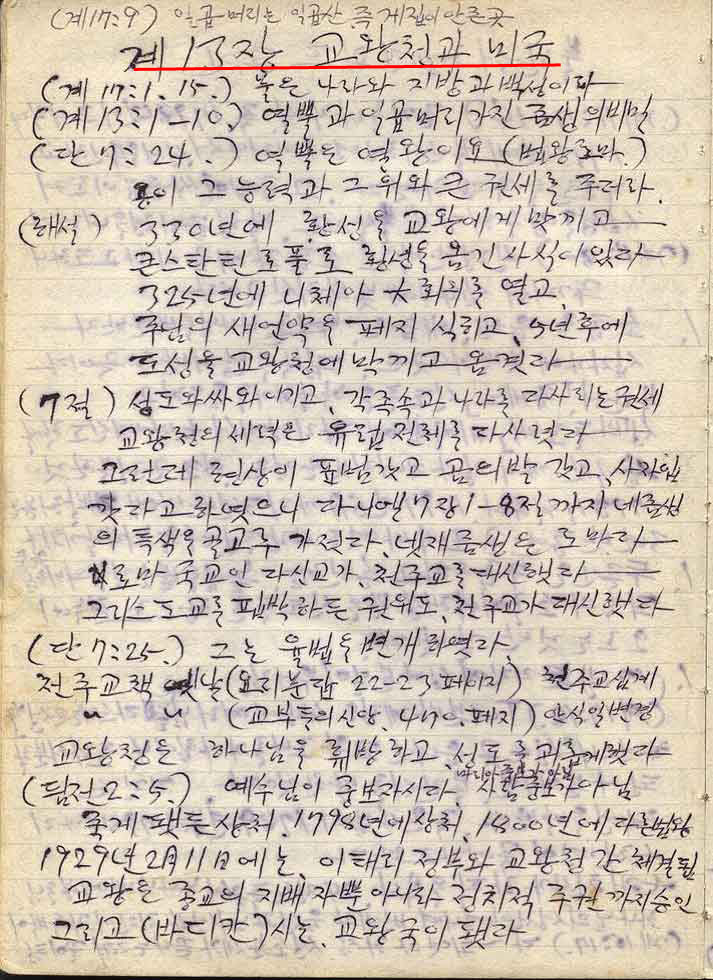 (계 17:9) 일곱머리는 일곱산, 즉 계집이 안즌곳
계 13장 교왕청과 미국
(계 17:1. 15.) 물은 나라와 지방과 백성이다
(계 13:1-10.) 열뿔과 일곱머리가진 즘생의비밀
(단 7:24.) 열뿔은 열왕이요 (법왕로마.)
용이 그 능력과 그 위와 큰 권세를 주더라.
(해설) 330년에 황성을 교왕에게 맛끼고
콘스탄틴로풀로 황성을 옴긴사식이 있다
325년에 니체아 大회위를 열고,
주님의 새언약을 페지 식히고, 5년후에
도성을 교왕청에 맛끼고 옴겻다
(7절) 성도와싸와이기고, 각족속과 나라를 다사리는권세
교왕전의 세력은 유럽전체를 다사렷다
그런데 형상이 표범갓고 곰의발 갓고, 사자입
갓다고 하엿으니 다니엘 7장 1-8절 까지 네즘생
의 특색을 골고루 가젓다. 넷재즘생은 로마라
로마 국교인 다신교가, 천주교를 대신햇다
그리스도교를 핍박하든 권위도, 천주교가 대신햇다
(단 7:25.) 그는 율법을 변개하엿다,
천주교책 옛날 (요리문답 22-23페이지) 천주교십계
〃 〃 (교부들의신앙, 470. 페지) 안식일변경
교왕청은 하나님을 훼방하고, 성도를괴롭게햇다
(딤전 2:5.) 예수님이 중보자시다, 사람중보가아님
죽게 됏든상처. 1798년에상처. 1800년에 다른법왕
1929년 2月 11日에는, 이태리 정부와 교왕전간 체결된
교왕은 종교의 지배자뿐아니라 정치적 주권까지승인
그리고 (바디칸)시는, 교왕국이 됏다